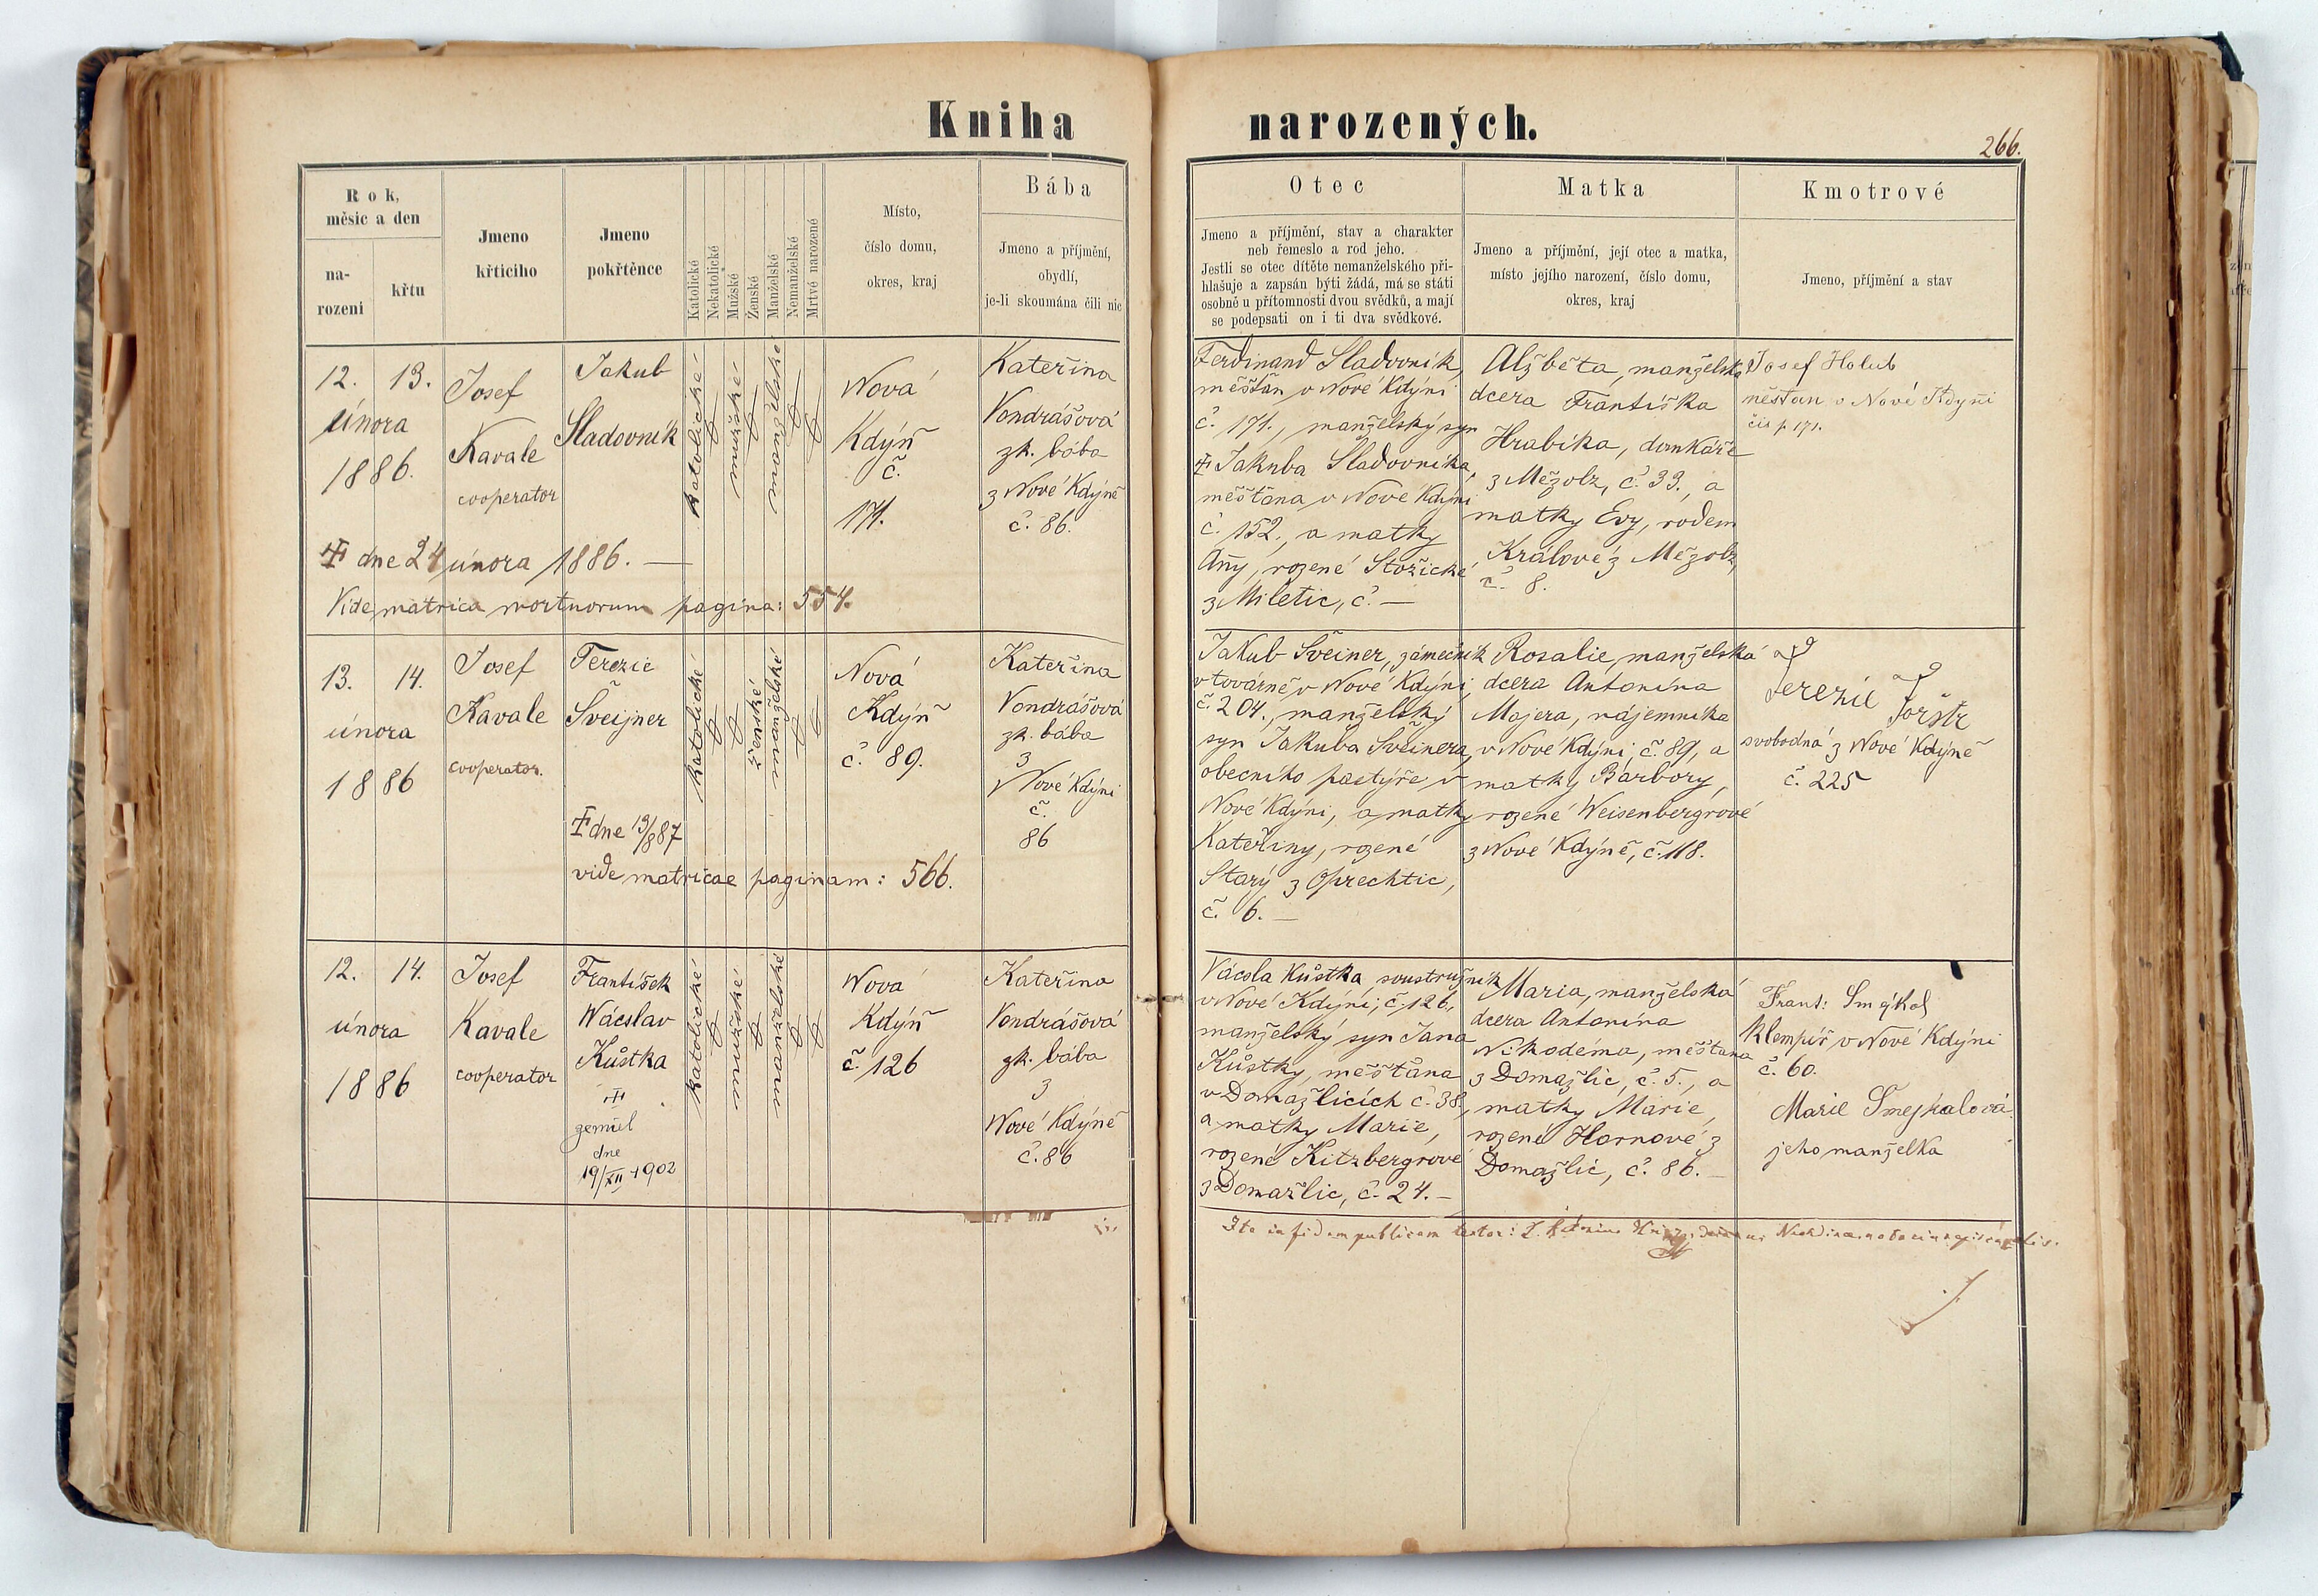 Kniha narozených.
266.
Rok,
měsíc a den
na-
rozeni
křtu
Jmeno
křticiho
Jmeno
pokřtěnce
Katolické
Nekatolické
Mužské
Ženské
Manželské
Nemanželské
Mrtvé narozené
Místo,
číslo domu,
okres, kraj
Bába
Jmeno a příjmění,
obydlí,
je-li skoumána čili nic
Otec
Jmeno a příjmění, stav a charakter
neb řemeslo a rod jeho.
Jestli se otec dítěte nemanželského při-
hlašuje a zapsán býti žádá, má se státi
osobně u přítomnosti dvou svědků, a mají
se podepsati on i ti dva svědkové.
Matka
Jmeno a příjmění, její otec a matka,
místo jejího narození, číslo domu,
okres, kraj
Kmotrové
Jmeno, příjmění a stav
12. 13.
února
1886.
Josef
Kavale
cooperator
Jakub
Sladovník
katolické
mužské
manželské
Nová
Kdýň
č.
171.
Kateřina
Vondrášová
zk. bába
z Nové Kdýně
č. 86.
Ferdinand Sladovník,
měšťan v Nové Kdýni
č. 171., manželský syn
Jakuba Sladovníka,
měšťana v Nové Kdýni
č. 152., a matky
Any, rozené Stožické
z Miletic, č. —
Alžběta, manželská
dcera Františka
Hrabíka, domkáře
z Mežolz, č. 33., a
matky Evy, rodem
Králové z Mežolz,
č. 8.
Josef Holub
měšťan v Nové Kdyni
čís p. 171.
dne 24 února 1886. —
Vide matrica mortuorum pagina: 554.
13. 14.
února
1886
Josef
Kavale
cooperator.
Terezie
Švejner
katolické
ženské
manželské
Nová
Kdýň
č. 89.
Kateřina
Vondrášová
zk. bába
z
Nové Kdýni
č.
86
dne 13/8 87
vide matricae paginam: 566.
Jakub Šveiner, zámečník
v továrně v Nové Kdýni,
č. 204., manželský
syn Jakuba Šveinera,
obecního pastýře v
Nové Kdýni, a matky
Kateřiny, rozené
Starý z Oprechtic,
č. 6. —
Rosalie, manželská
dcera Antonína
Majera, nájemníka
v Nové Kdýni, č. 89, a
matky Barbory,
rozené Weisenbergrové
z Nové Kdýně, č. 118.
Terezie Jorštr
svobodná z Nové Kdýně
č. 225
12. 14.
února
1886
Josef
Kavale
cooperator
František
Wácslav
Kůstka
zemřel
dne
19/XII 1902
katolické
mužské
manželské
Nová
Kdýň
č. 126
Kateřina
Vondrášová
zk. bába
z
Nové Kdýně
č. 86
Vácsla Kůstka, soustružník
v Nové Kdýni, č. 126.,
manželský syn Jana
Kůstky, měšťana
v Domažlicích č. 38.,
a matky Marie,
rozené Kitzbergrové
z Domažlic, č. 24. —
Maria, manželská
dcera Antonína
Nikodéma, měšťana
z Domažlic, č. 5., a
matky Marie,
rozené Hornové z
Domažlic, č. 86. —
Frant: Smýkal
klempíř v Nové Kdýni
č. 60.
Marie Smejkalová
jeho manželka
Ita in fidem publicam testor: